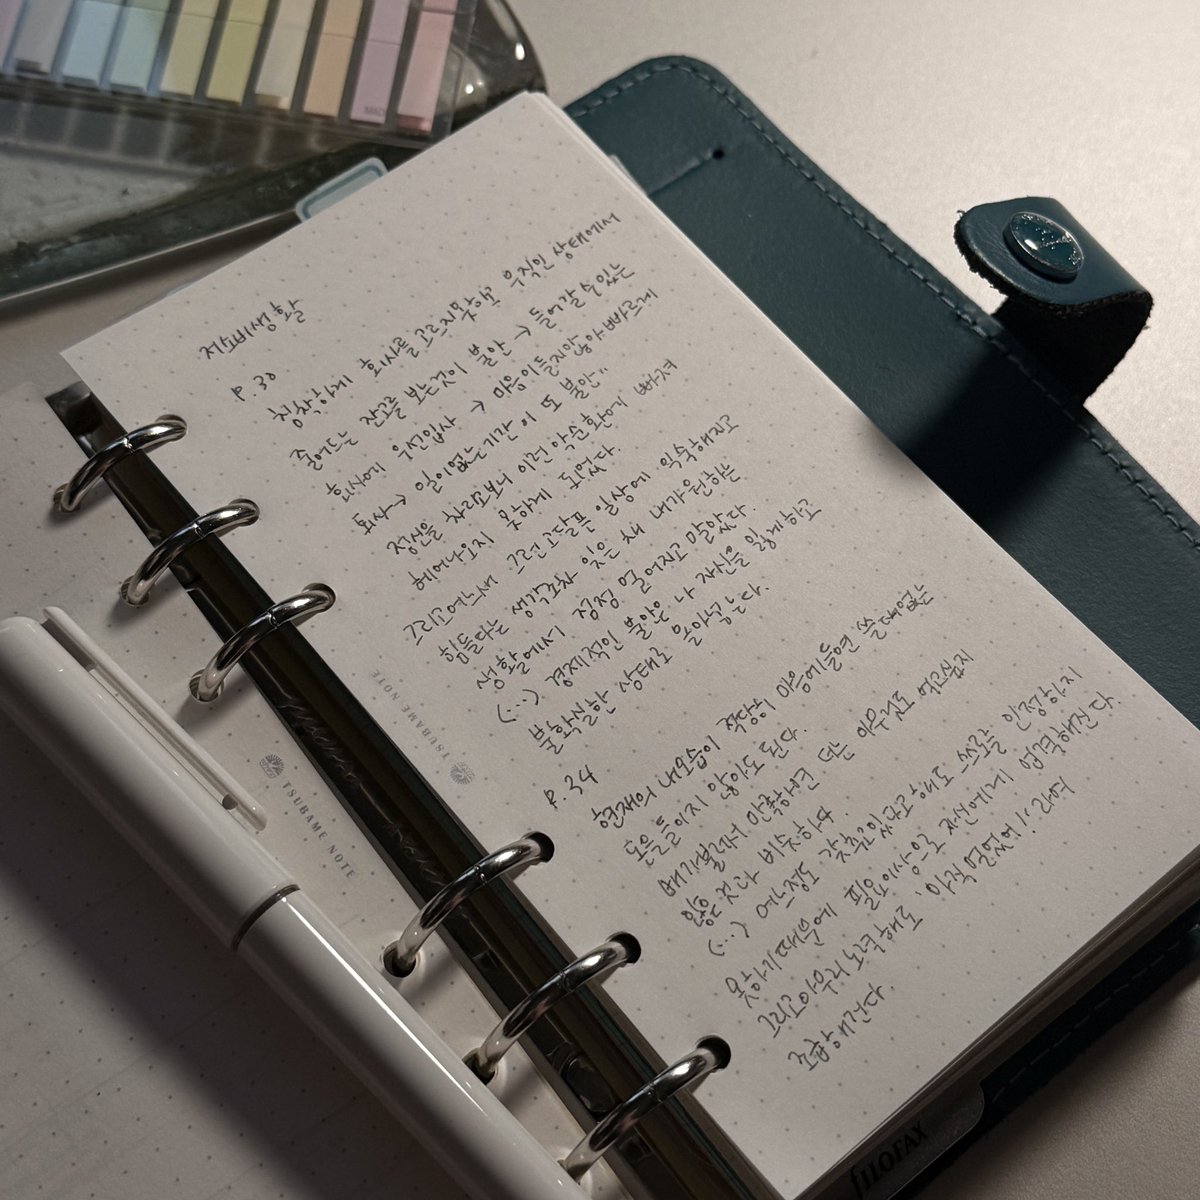 저소비생활
p.30
침착하게 회사를 고르지못하면 무직인 상태에서
줄어드는 잔고를 보는것이 불안 → 들어갈 수 있는
회사에 우선입사 → 마음이들지않아 빠르게
퇴사 → 일이없는기간이 또 불안"
정신을 차려보니 이런 악순환에 빠져
헤어나오지 못하게 되었다.
그리고어느새 그런고달픈 일상에 익숙해지고
힘들다는 생각조차 잊은 채 내가원하는
생활에서 점점 멀어지고 말았다.
(...) 경제적인 불안은 나 자신을 잃게하고
불확실한 상태로 몰아넣는다.
p.34
현재의 내모습이 적당히 마음에들면 쓸데없는
돈을들이지 않아도 된다.
배가불러서 만족하면 더는 아무것도 먹고싶지
않은 것과 비슷하다.
(...) 어느정도 갖추고있다고 해도 스스로를 인정하지
못하기때문에 필요이상으로 자신에게 엄격해진다.
그리고아무리 노력해도 '아직멀었어!' 라며
조급해진다.
TSUBAME NOTE
TSUBAME NOTE
fILOFAX